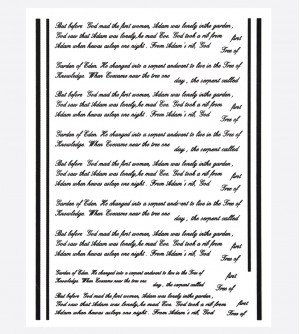 But before God mad the first women, Adam was lonely inthe garden,
God saw that Adam was lonely,he mad Eve. God took a rib from
Adam when hewas aslep one night. From Adam's rib, God
first
Tree of
Garden of Eden. He changed into a serpent andwent to live in the Tree of
Knowledge. When Evecame near the tree one
day, the serpent called
But before God mad the first women, Adam was lonely inthe garden,
God saw that Adam was lonely,he mad Eve. God took a rib from
Adam when hewas aslep one night. From Adam's rib, God
first
Tree of
Garden of Eden. He changed into a serpent andwent to live in the Tree of
Knowledge. When Evecame near the tree one
day, the serpent called
But before God mad the first women, Adam was lonely inthe garden,
God saw that Adam was lonely,he mad Eve. God took a rib from
Adam when hewas aslep one night. From Adam's rib, God
first
Tree of
Garden of Eden. He changed into a serpent andwent to live in the Tree of
Knowledge. When Evecame near the tree one
day, the serpent called
But before God mad the first women, Adam was lonely inthe garden,
God saw that Adam was lonely,he mad Eve. God took a rib from
Adam when hewas aslep one night. From Adam's rib, God
first
Tree of
Garden of Eden. He changed into a serpent andwent to live in the Tree of
Knowledge. When Evecame near the tree one
day, the serpent called
first
Tree of
But before God mad the first women, Adam was lonely inthe garden,
God saw that Adam was lonely,he mad Eve. God took a rib from
Adam when hewas aslep one night. From Adam's rib, God
first
Tree of